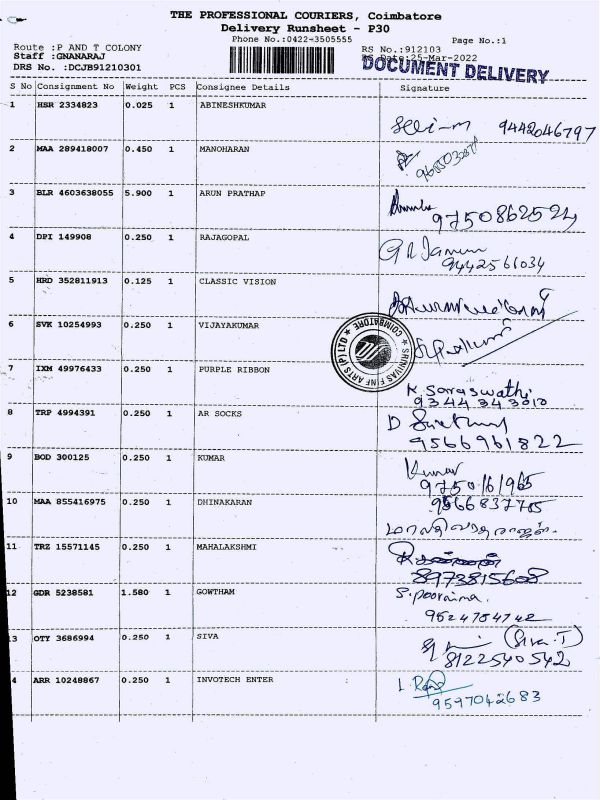 THE PROFESSIONAL COURIERS, Coimbatore
Delivery Runsheet - P30
Phone No.:0422-3505555
Page No.:1
Route :P AND T COLONY
RS No.:912103
Staff :GNANARAJ
RS Date:25-Mar-2022
DRS No. :DCJB91210301
DOCUMENT DELIVERY
S No Consignment No Weight PCS Consignee Details Signature
1 HSR 2334823 0.025 1 ABINESHKUMAR
9442046797
2 MAA 289418007 0.450 1 MANOHARAN
3 BLR 4603638055 5.900 1 ARUN PRATHAP
9750862524
4 DPI 149908 0.250 1 RAJAGOPAL
9442561034
5 HRD 352811913 0.125 1 CLASSIC VISION
6 SVK 10254993 0.250 1 VIJAYAKUMAR
SHNIVAS FINE ARTS (P) LTD ★ COIMBATORE ★
7 IXM 49976433 0.250 1 PURPLE RIBBON
K Saraswathi
9344343010
8 TRP 4994391 0.250 1 AR SOCKS
9566961822
9 BOD 300125 0.250 1 KUMAR
Kumar
9750161965
10 MAA 855416975 0.250 1 DHINAKARAN
9566837705
11 TRZ 15571145 0.250 1 MAHALAKSHMI
8973815608
12 GDR 5238581 1.580 1 GOWTHAM
S. poornima.
9524754742
13 OTY 3686994 0.250 1 SIVA
(Siva.T)
8122540542
4 ARR 10248867 0.250 1 INVOTECH ENTER
9597042683